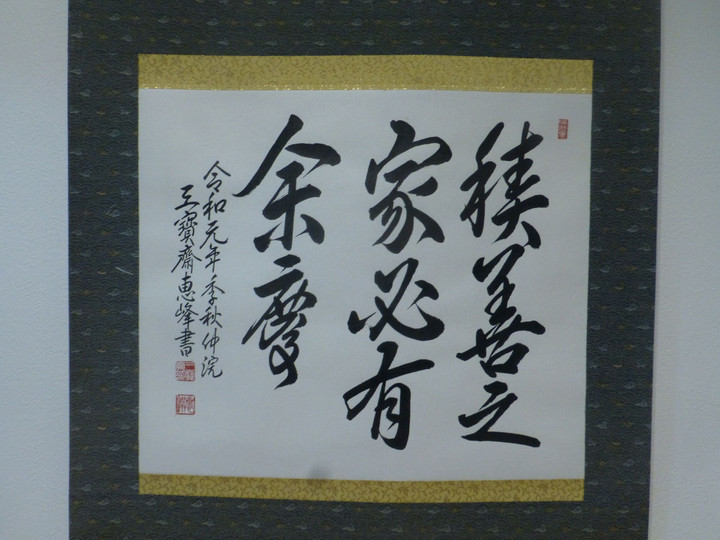 積善之
家必有
余慶
令和元年季秋仲浣
三寶齋惠峰書